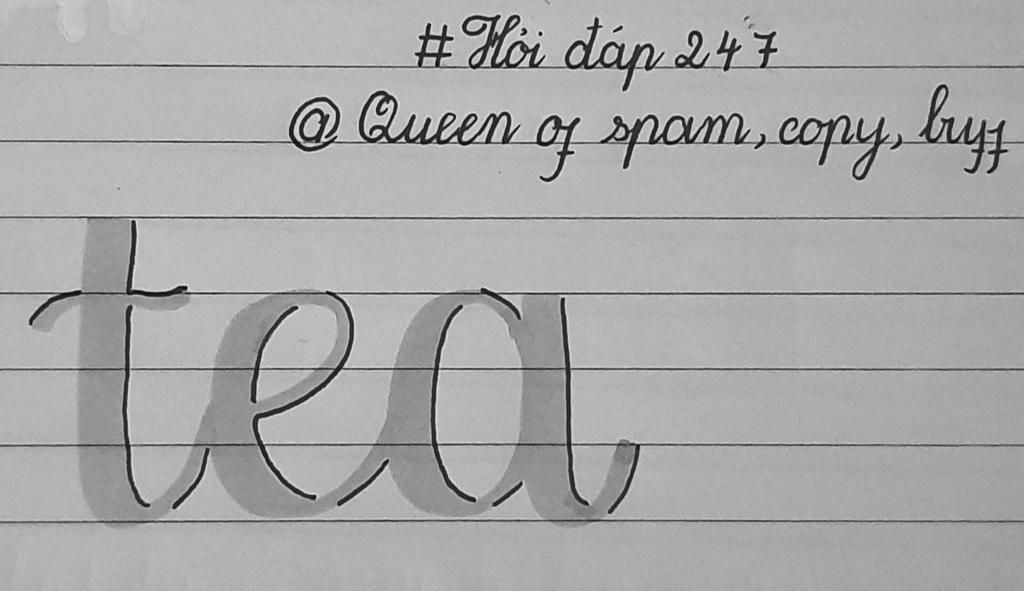 #Hỏi đáp 247
@ Queen of spam, copy, buff
tea